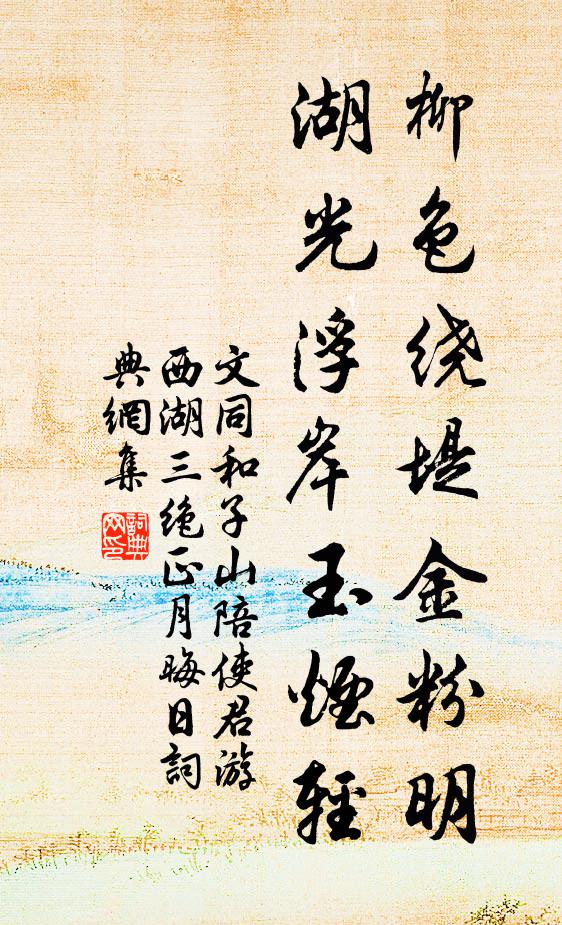 柳色绕堤金粉明
湖光浮岸玉煙輕
文同和子山陪使君游
西湖三绝正月晦日詞
典網集
詞典網印